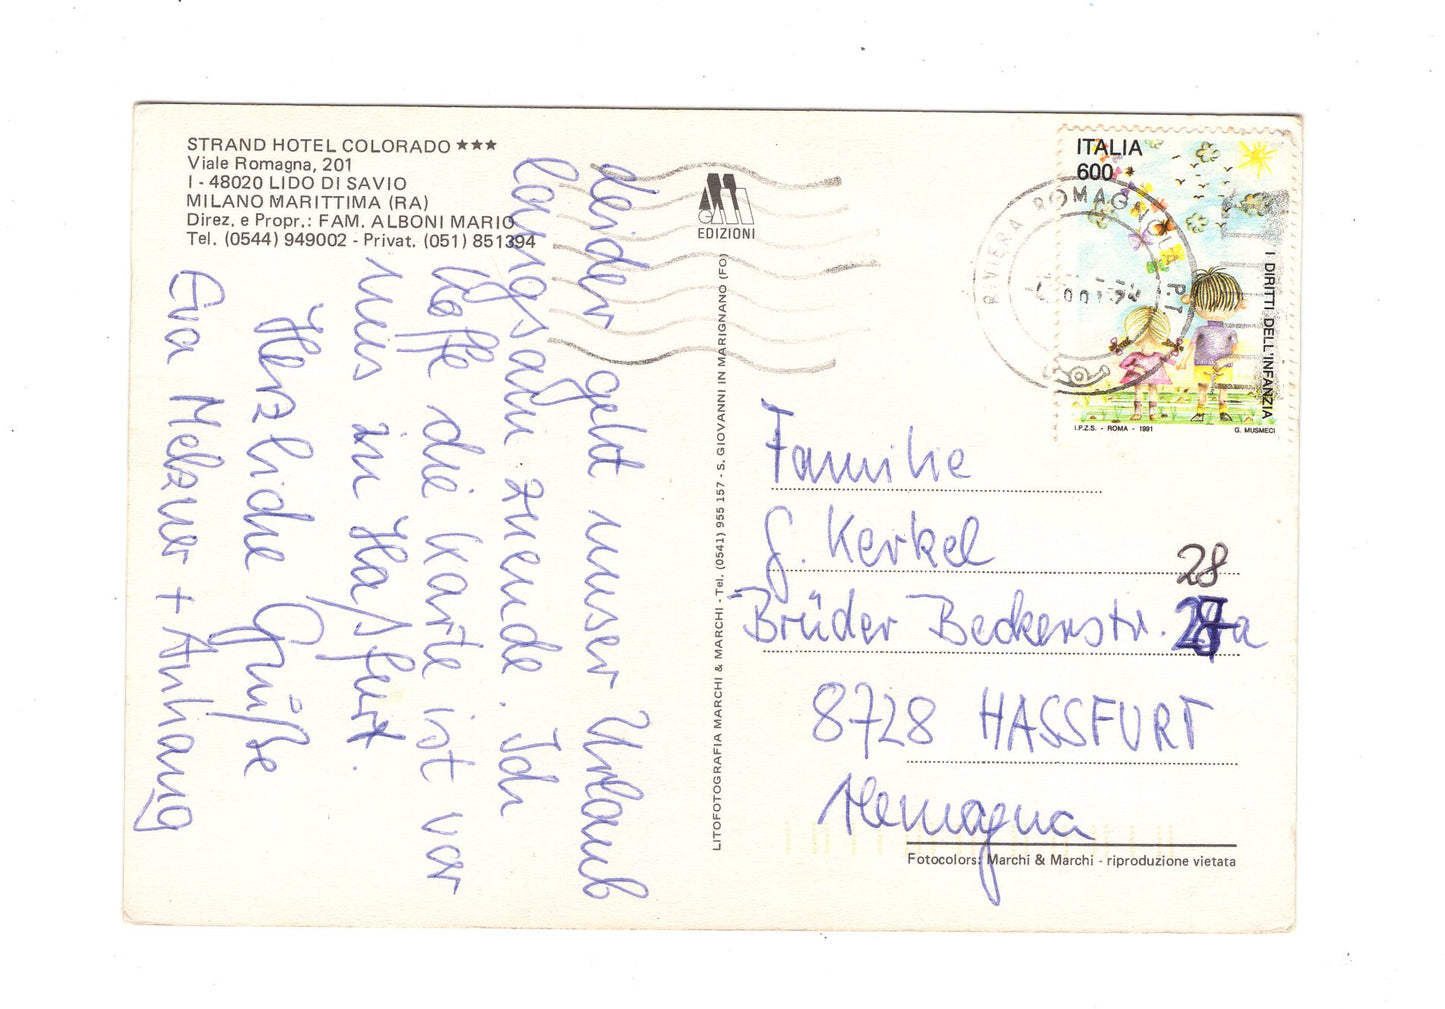 STRAND HOTEL COLORADO ★★★
Viale Romagna, 201
I - 48020 LIDO DI SAVIO
MILANO MARITTIMA (RA)
Direz. e Propr.: FAM. ALBONI MARIO
Tel. (0544) 949002 - Privat. (051) 851394
Leider geht unser Urlaub
langsam zuende. Ich
hoffe die Karte ist vor
uns in Haßfurt.
Herzliche Grüße
Eva Melzner + Anhang
EDIZIONI
LITOFOTOGRAFIA MARCHI & MARCHI - Tel. (0541) 955 157 - S. GIOVANNI IN MARIGNANO (FO)
RIVIERA ROMAGNOLA P.T
ITALIA
600
I DIRITTI DELL'INFANZIA
I.P.Z.S. - ROMA - 1991
G. MUSMECI
Familie
G. Kerkel
28
Brüder Beckenstr. a
8728 HASSFURT
Alemagna
Fotocolors: Marchi & Marchi - riproduzione vietata